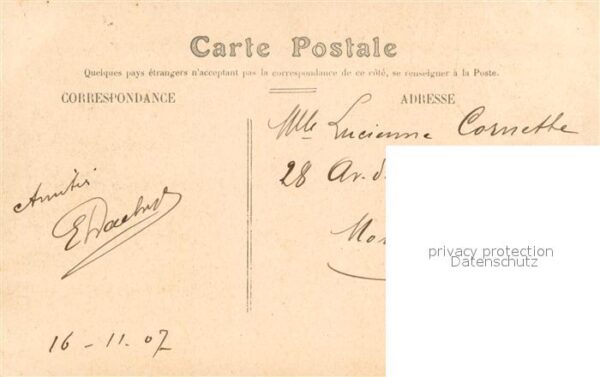 Carte Postale
Quelques pays étrangers n'acceptant pas la correspondance de ce côté, se renseigner à la Poste.
CORRESPONDANCE
ADRESSE
Mlle Lucienne Cornette
28 Av. d
Mon
Amitiés
16 - 11. 07
privacy protection
Datenschutz